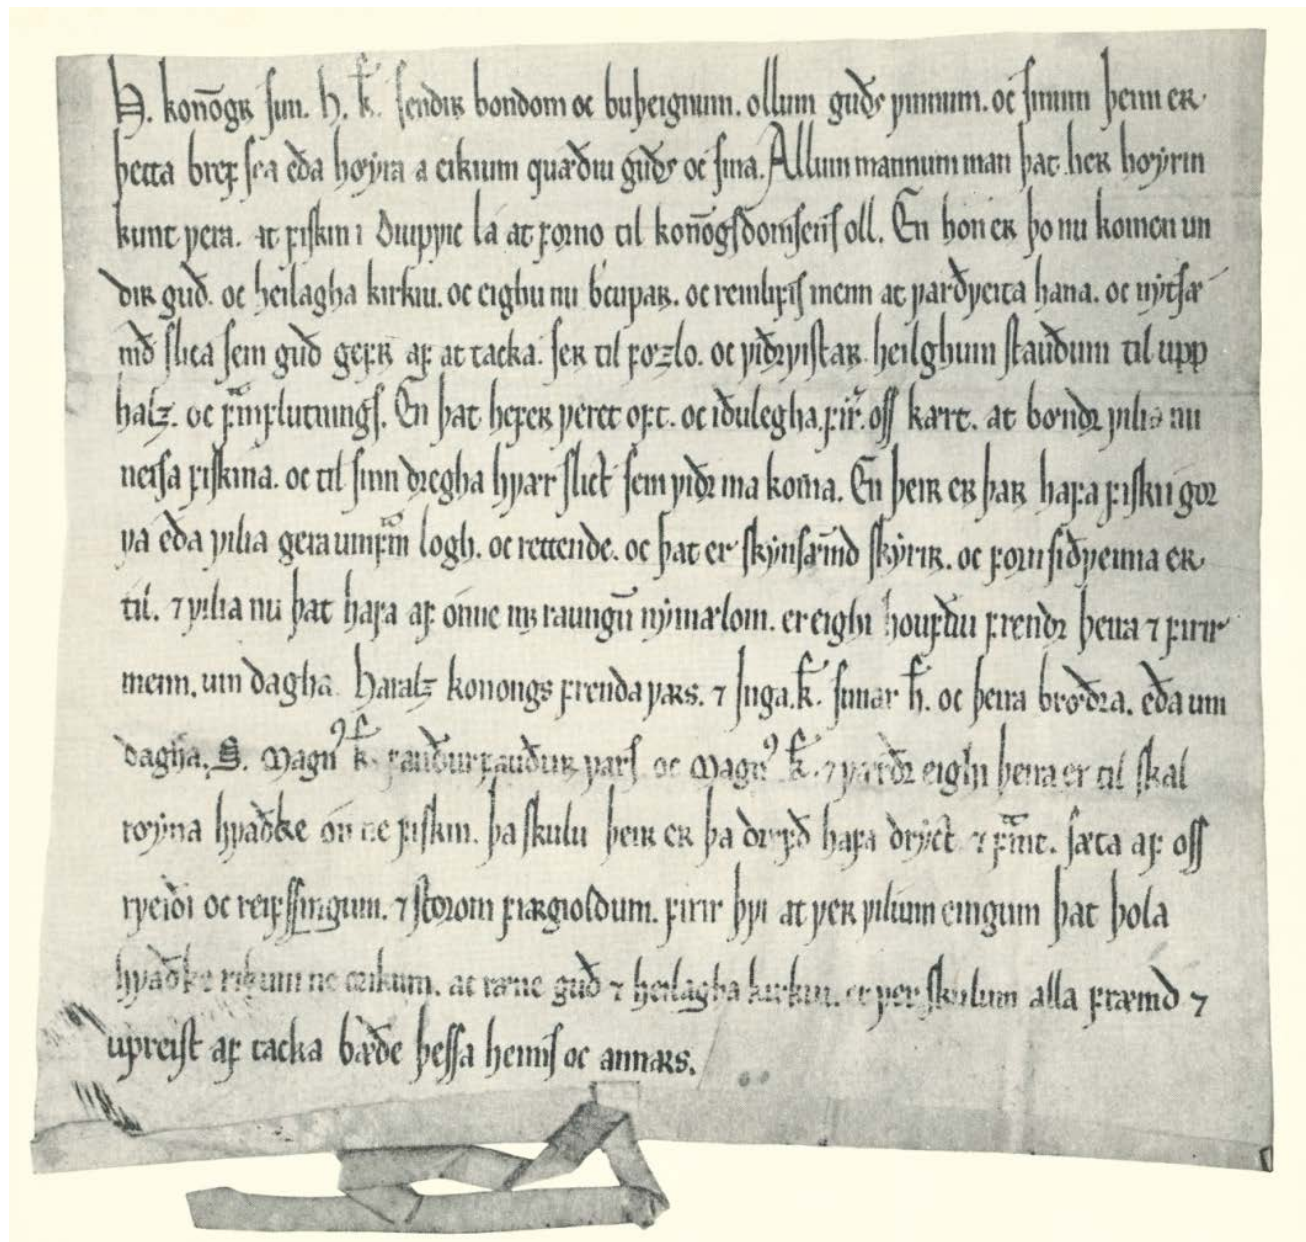 H. konōgʀ ſun. h. k̄. ſendiʀ bondom oc buþeignum. ollum guðſ ꝩinnum. oc ſinum þeim eʀ
þetta breꝼ ſea eða hoyra a eikium quæðiu guðſ oc ſina. Allum mannum man þat heʀ hoyrin
kunt ꝩera. at ꝼiſkin i diupꝩic la at ꝼorno til konōgſdomſenſ oll. En hon eʀ þo nu komen un
diʀ guð. oc heilagha kirkiu. oc eighu nu b̄cupaʀ. oc reinliꝼiſ menn at ꝩarðꝩeita hana. oc nytſæ
mð ſlica ſem guð geꝼʀ aꝼ at tacka. ſeʀ til ꝼozlo. oc ꝩiðrꝩiſtaʀ heilghum ſtauðum til upp
halz. oc ꝼ̄mꝼlutningſ. En þat heꝼeʀ ꝩeret oꝼt. oc iðulegha. ꝼir̄. oſſ kært. at bondꝛ ꝩilia nu
neiſa ꝼiſkina. oc til ſinn dregha hꝩart ſlict ſem ꝩiðꝛ ma koma. En þeiʀ eʀ þaʀ haꝼa ꝼiſki gor
ꝩa eða ꝩilia gera umꝼ̄m logh. oc rettende. oc þat er ſkynſæmð ſkyriʀ. oc ꝼorn ſiðꝩenna eʀ
til. ⁊ ꝩilia nu þat haꝼa aꝼ onne mʒ raungū nymælom. er eighi houꝼðu ꝼrendꝛ þeira ⁊ ꝼirir
menn. um dagha haralz konongs ꝼrenda ꝩaʀs. ⁊ Inga. k̄. ſunar h̄. oc þeira brœðra. eða um
dagha. S. magnꝰ k̄. ꝼauðurꝼauðuʀ ꝩarſ oc magnꝰ k̄. ⁊ ꝩærðꝛ eighi þeira er til ſkal
royna hꝩaðke on ne ꝼiſkin. þa ſkulu þeiʀ eʀ þa dirꝼð haꝼa dryct ⁊ ꝼ̄mt. ſæta aꝼ oſſ
rꝩeiði oc reiꝼſſingum. ⁊ ſtorom ꝼiægioldum. ꝼirir þꝩi at ꝩeʀ ꝩilium eingum þat þola
hꝩaðke rikum ne œikum. at ræne guð ⁊ heilagha kirkiu. er ꝩer ſkulum alla ꝼræmd ⁊
upreiſt aꝼ tacka bæðe þeſſa heimſ oc annaʀs.